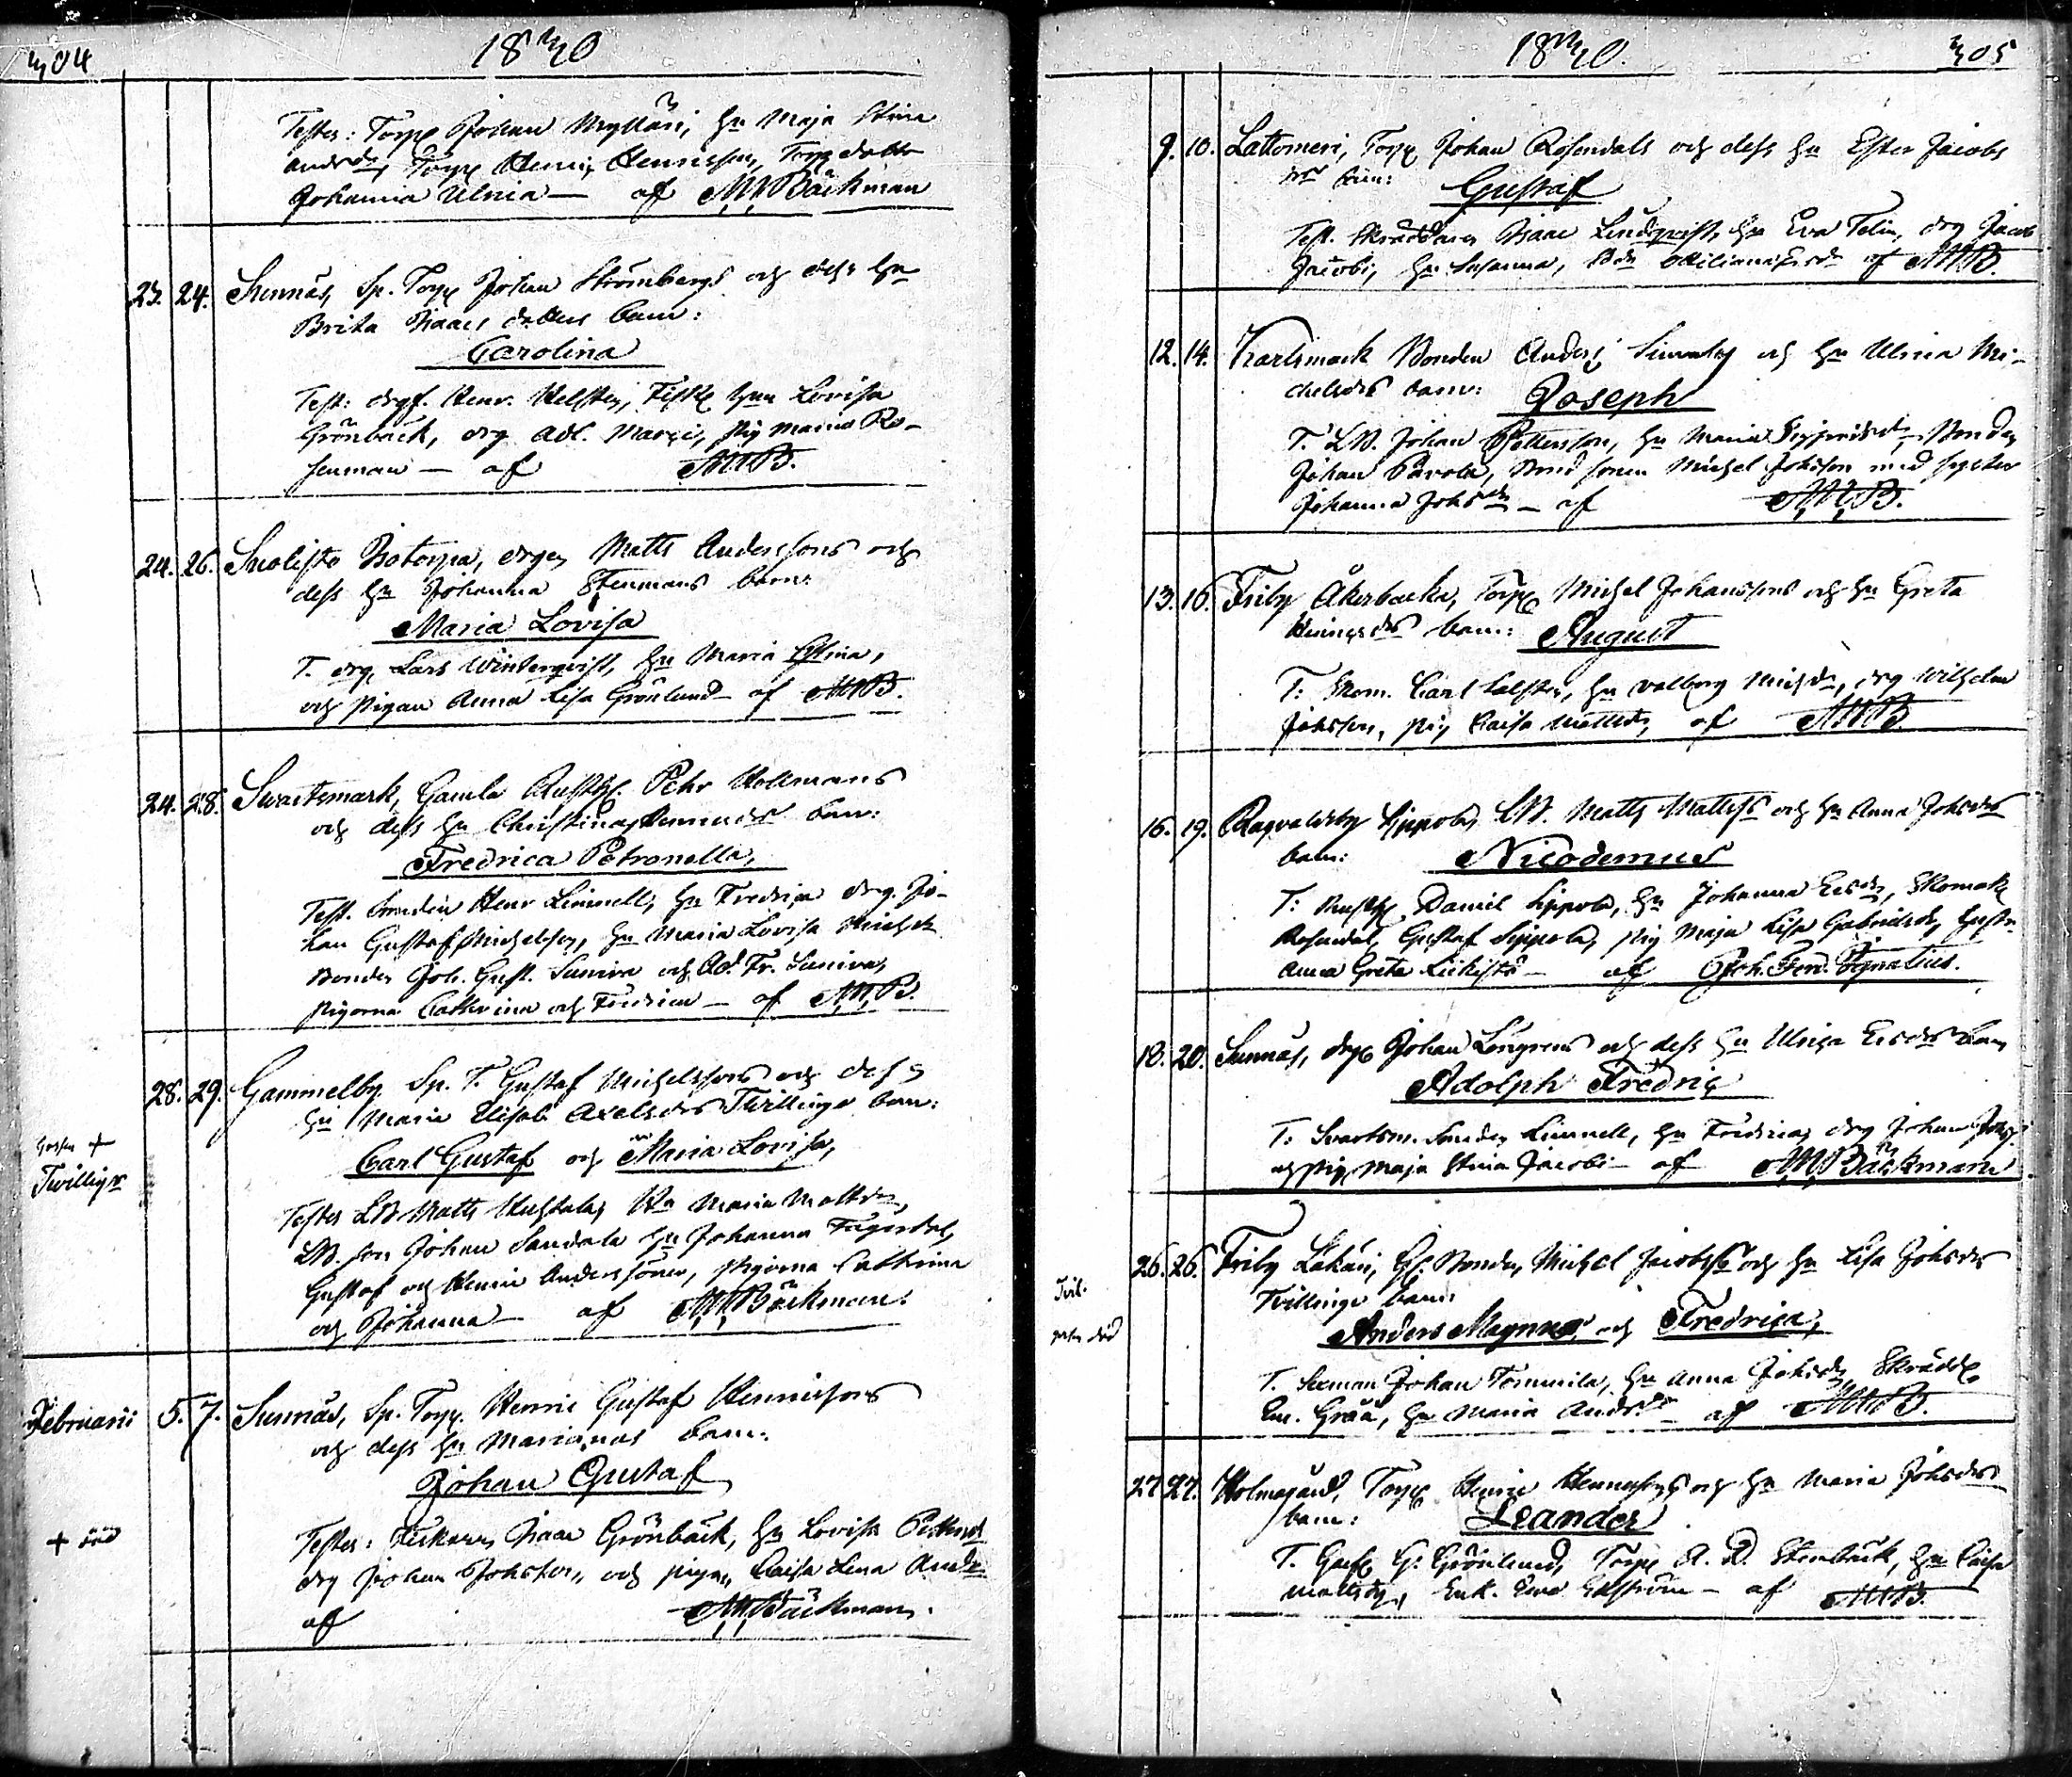 304
1830
Testes: Torp Johan Mylläri, hu Maja Stina
Andrdr, Torp Henric Henricsson, Torp dotter
Johanna Ulrica — af MWBäckman
23. 24. Sunnäs, Sp. Torp Johan Strömbergs och dess hu
Brita Isaacs dotters barn:
Carolina
Test: drgf. Henr. Hellsten, Fisk hun Lovisa
Grönbäck, drg Adl. , pig Maria Ro-
senman — af MWB.
24. 26. Botorpa, drgen Matts Anderssons och
dess hu Johanna Stenmans barn:
Maria Lovisa
T. drg Lars Winterqvist, hu Maria Stina,
och pigan Anna Lisa Grönlund — af MWB.
24. 28. Swartsmark, Gamla Rusth. Pehr Hellmans
och dess hu Christina barn:
Fredrica Petronella,
Test. Bonden Henr Linnell, hu Fredrica drg. Jo-
han Gustaf Michelsson, hu Maria Lovisa Michdr
Bonden Joh. Gust. Suniva och Ad. Fr. Suniva,
pigorna Cathrina och Fredrica — af MWB.
28. 29. Gammelby Sp. T. Gustaf Michelssons och dess
hu Maria Elisab. Axelsdrs Tvillinge barn:
Gossen +
Tvillingr
Carl Gustaf och Maria Lovisa,
Testes LB Matts , Hu Maria Mattsdr,
LB. son Johan Sandala hu Johanna Fagerdal,
Gustaf och Henric Anderssöner, pigorna Cathrina
och Johanna — af MWBäckman.
Februarii 5. 7. Sunnäs, Sp. Torp. Henric Gustaf Henricssons
och dess hu Marianas barn:
Johan Gustaf
+ död
Testes: Fiskaren Isaac Grönbäck, hu Lovisa
drg Johan Johsson, och pigan Caisa Lena Andr
af MWBäckman.
1830.
305
9. 10. Lattomeri, Torp Johan Rosendals och dess hu Ester Jacobs
drs barn: Gustaf
Test. Skräddaren Isaac Lindqvist, hu Eva Felin, drg Jacob
Jacobs, hu Susanna, af MWB.
12. 14. Karlsmark Bonden Anders och hu Ulrica Mi-
chelsdrs barn: Joseph
T. LB. Johan Pettersson, hu Maria Sigfridsdr, Bonden
Johan Pavola, Bondsonen Michel Johsson med syster
Johanna Johsdr — af MWB.
13. 16. Friby Åkerbacka, Torp Michel Johanssons och hu Greta
Henricsdrs barn: August
T: Skom. Carl , hu Valborg Michdr, drg Wilhelm
Johsson, pig Caisa Mattsdr, af MWB.
16. 19. Ragvaldsby Sippola, LB. Matts Mattss och hu Anna Johsdrs
barn: Nicodemus
T: Rusth. Daniel Sippola, hu Johanna Ersdr, Skomak
Rosendal, Gustaf Sippola, pig Maja Lisa Gabrielsdr, hustr
Anna Greta — af Joh. Ferd. Ignatius.
18. 20. Sunnäs, drg Johan Löngrens och dess hu Ulrica Ersdrs barn
Adolph Fredric
T: Svartsm. Bonden Linnell, hu Fredrica, drg Johan
och pig Maja Stina Jacobs — af MWBäckman
26. 26. Friby Lakari, Bonden Michel Jacobss och hu Lisa Johsdrs
Tvil.
Tvillinge barn:
Anders Magnus och Fredrica,
T. Seeman Johan Tommila, hu Anna Johsdr, Skrädd.
Em. Grää, hu Maria Andrsdr — af MWB.
27. 27. Holmasand, Torp Henric Henricssons och hu Maria Johsdrs
barn: Leander
T. G. Grönlund, Torp A. D. Stenbäck, hu Caisa
Mattsdr, Enk. Eva — af MWB.